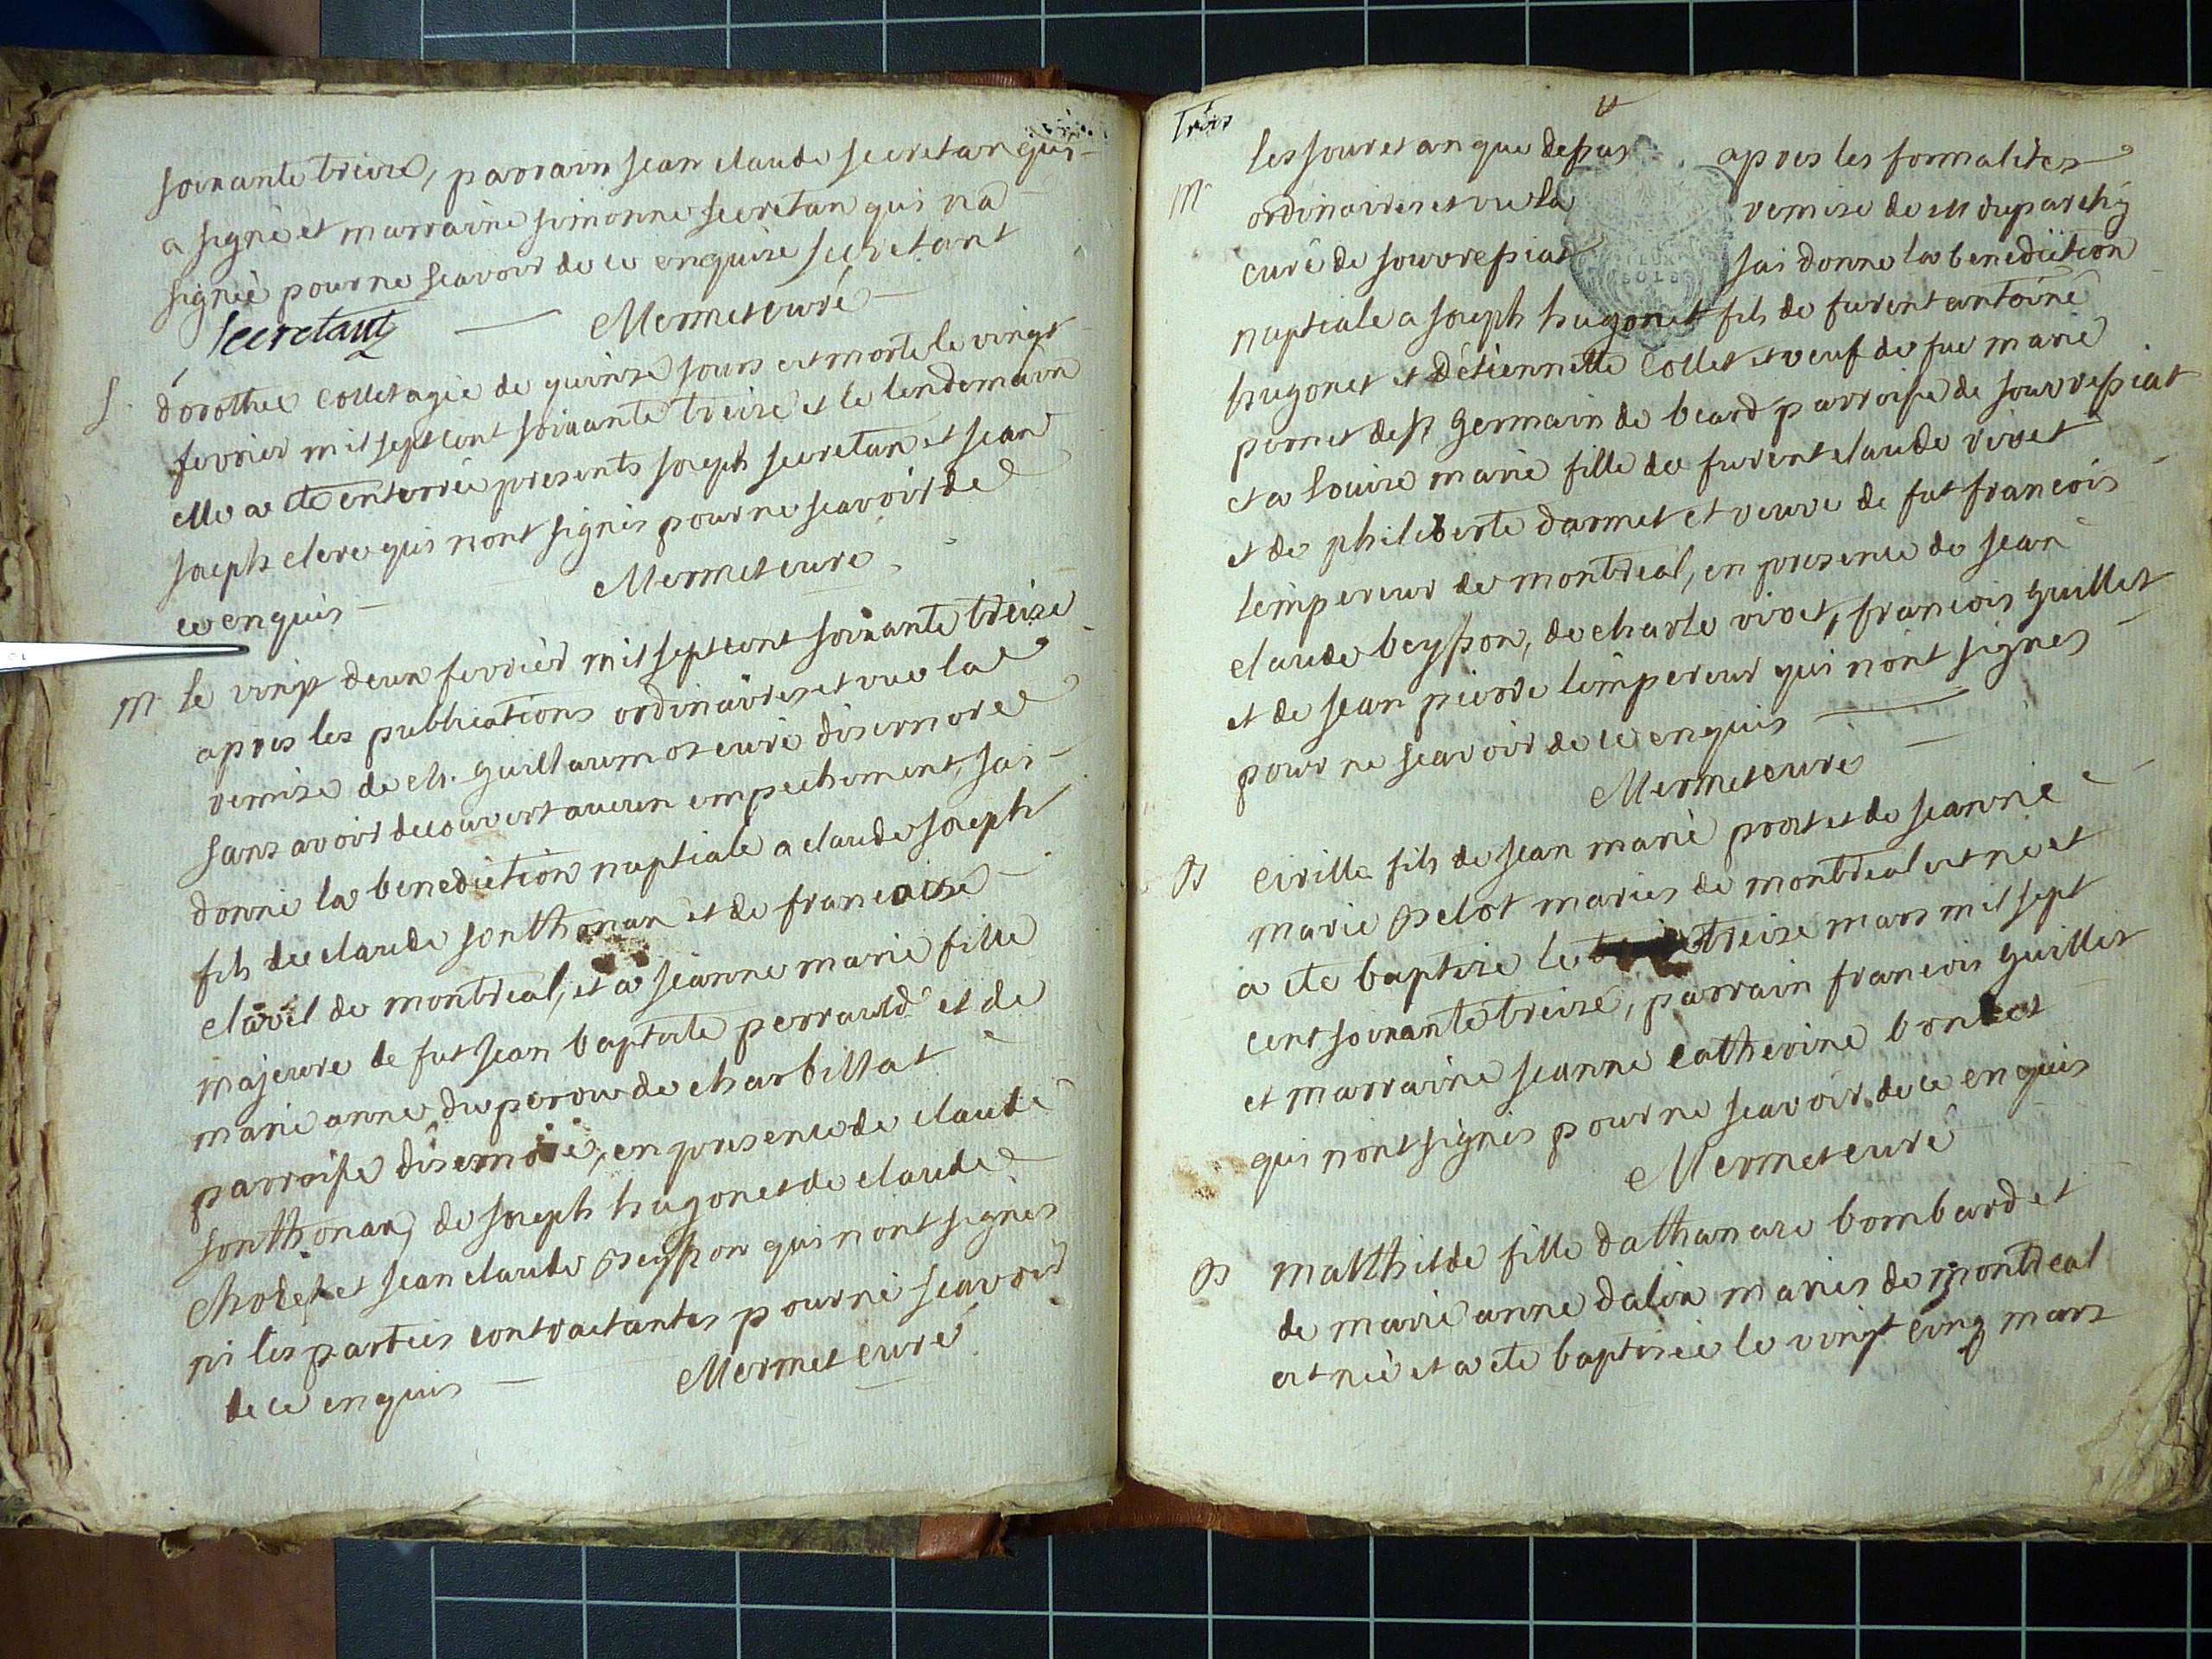 soixante treize, parrain jean claude secretan qui
a signé et marraine simonne secretan qui na
signée pour ne scavoir de ce enquise secretant
secretant Mermet curé
S. dorothée collet agée de quinze jours est morte le vingt
fevrier mil sept cent soixante treize et le lendemain
elle a été enterrée presents joseph secretan et jean
joseph clerc qui nont signés pour ne scavoir de
ce enquis
Mermet curé
M le vingt deux fevrier mil sept cent soixante treize
apres les publications ordinaires et vue la
remise de M. guillaumot curé disernore
sans avoir decouvert aucun empechement, jai
donné la benediction nuptiale a claude joseph
fils de claude sonthonax et de francoise
clavel de montreal, et a jeanne marie fille
majeure de fut jean baptiste perrauld et de
marie anne duperou de charbillat
parroisse disernore, en presence de claude
sonthonax, de joseph hugonet de claude
et jean claude Beysson qui nont signés
ni les parties contractantes pour ne scavoir
de ce enquis
Mermet curé
trois
M les jour et an que dessus apres les formalités
ordinaires et vue la remise de M duparchy
curé de jouvressiat jai donné la benediction
nuptiale a joseph hugonet fils de furent antoine
hugonet et détiennette collet et veuf de fue marie
pernet de st germain de beard parroisse de jouvressiat
et a louise marie fille de furent claude vivet
et de philiberte darmet et veuve de fut francois
lempereur de montreal, en presence de jean
claude beysson, de charle vivet, francois guillet
et de jean pierre lempereur qui nont signés
pour ne scavoir de ce enquis
Mermet curé
B cirille fils de jean marie prost et de jeanne
marie Pelot mariés de montreal est né et
a été baptisé le treize mars mil sept
cent soixante treize, parrain francois guillet
et marraine jeanne catherine
qui nont signés pour ne scavoir de ce enquis
Mermet curé
B Matthilde fille dathanaze bombard et
de marie anne dalix mariés de montreal
est née et a été baptisée le vingt cinq mars